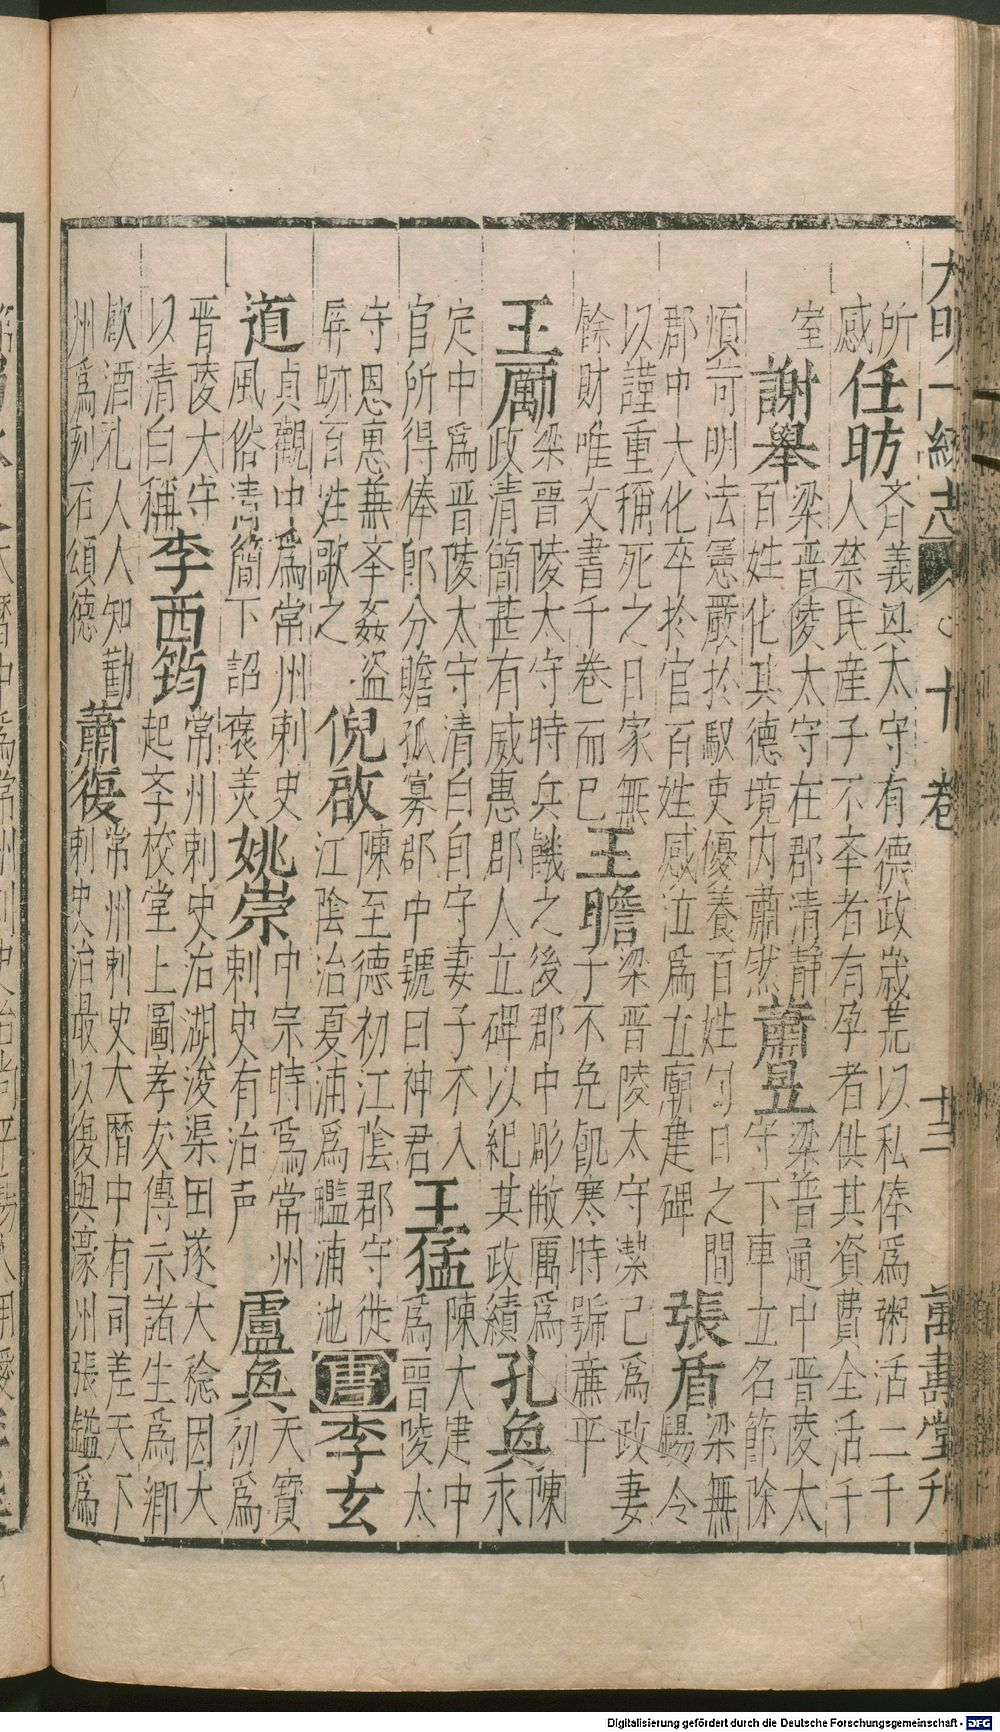 大明一統志 之十卷 廿三 萬壽堂刋
所
感
任昉
斉義興太守有德政歲荒以私俸爲粥活二千
人禁民産子不斈者有孕者供其資費全活千
室
謝舉
梁晋陵太守在郡清静
百姓化其德境内肅然
蕭昱
梁普通中晋陵太
守下車立名節除
煩苛明法憲嚴於馭吏優養百姓旬日之間
郡中大化卒於官百姓感泣爲立廟建碑
張盾
梁無
錫令
以謹重稱死之日家無
餘財唯文書千卷而已
王瞻
梁晋陵太守潔己爲政妻
子不免飢寒時號亷平
王厲
梁晋陵太守時兵饑之後郡中彫敝厲爲
政清簡甚有威惠郡人立碑以紀其政績
孔奐
陳
永
定中爲晋陵太守清白自守妻子不入
官所得俸即分贍孤寡郡中號曰神君
王猛
陳大建中
爲晋陵太
守恩惠兼斈姦盗
屏跡百姓歌之
倪啟
陳至德初江陰郡守徙
江陰治夏浦爲艦浦池
唐
李玄
道
貞觀中爲常州刺史
風俗清簡下詔褒美
姚崇
中宗時爲常州
刺史有治声
盧奐
天寶
初爲
晋陵大守
以清白稱
李西筠
常州刺史治湖浚渠田遂大稔因大
起斈校堂上圖孝友傳示諸生爲鄉
飲酒礼人人知勸
州爲刻石頌德
蕭復
常州刺史大曆中有司差天下
刺史治最以復與濠州張鎰爲
Digitalisierung gefördert durch die Deutsche Forschungsgemeinschaft - DFG